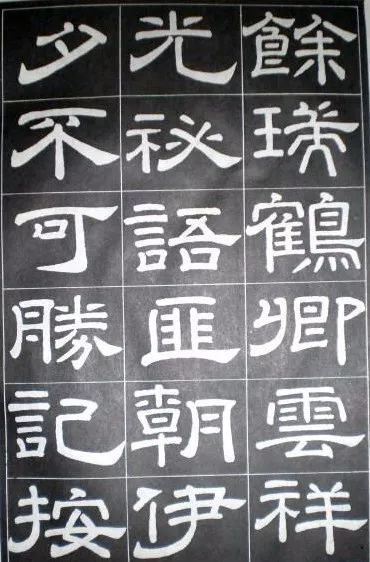 餘鶴卿雲祥
光祕語匪朝伊
夕不可勝記按